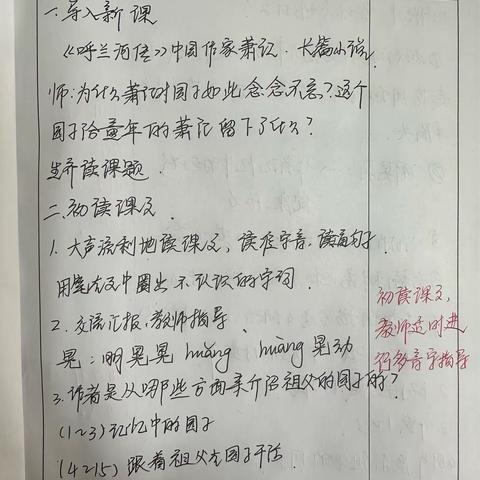 一.导入新课
《呼兰河传》中国作家萧红.长篇小说.
师:为什么萧红对园子如此念念不忘?这个
园子给童年的萧红留下了什么?
生齐读课题.
二.初读课文.
1.大声流利地读课文,读准字音,读通句子.
用笔在文中圈出不认识的字词
2.交流汇报.教师指导.
晃:明晃晃 huǎng huàng 晃动
3.作者是从哪些方面来介绍祖父的园子的?
(1~3)记忆中的园子
(4~15)跟着祖父在园子干活.
初读课文,
教师适时进
行多音字指导